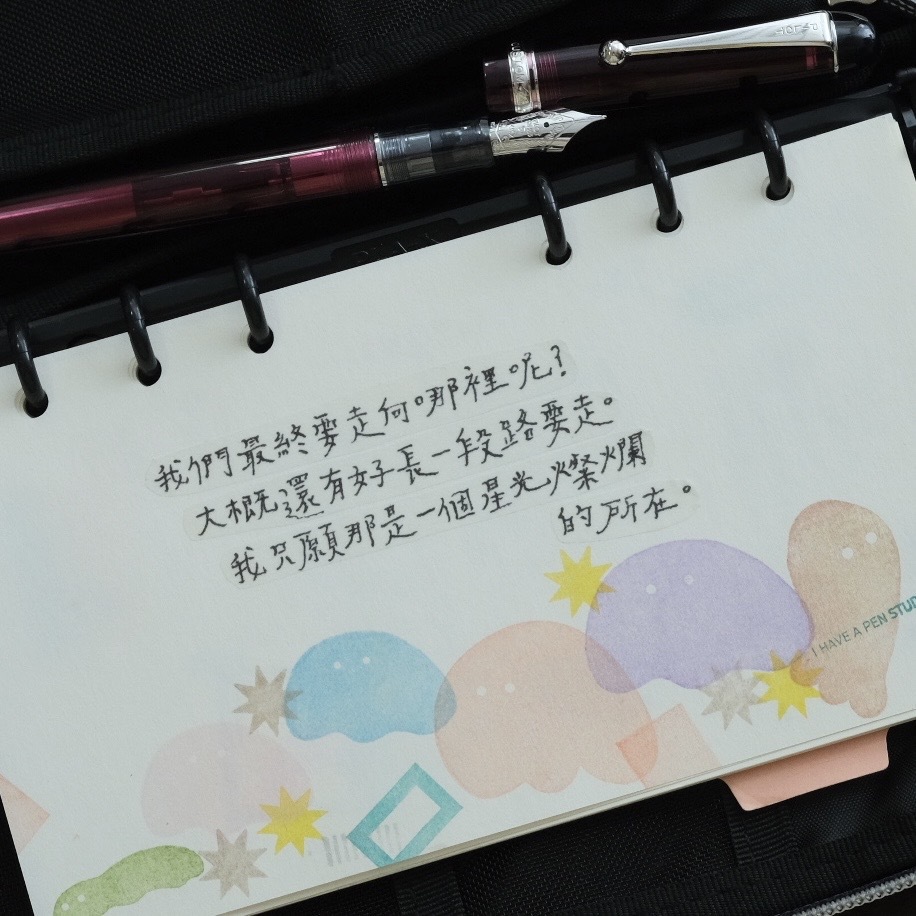 PILOT
我們最終要走向哪裡呢？
大概還有好長一段路要走。
我只願那是一個星光燦爛
的所在。
I HAVE A PEN STUD